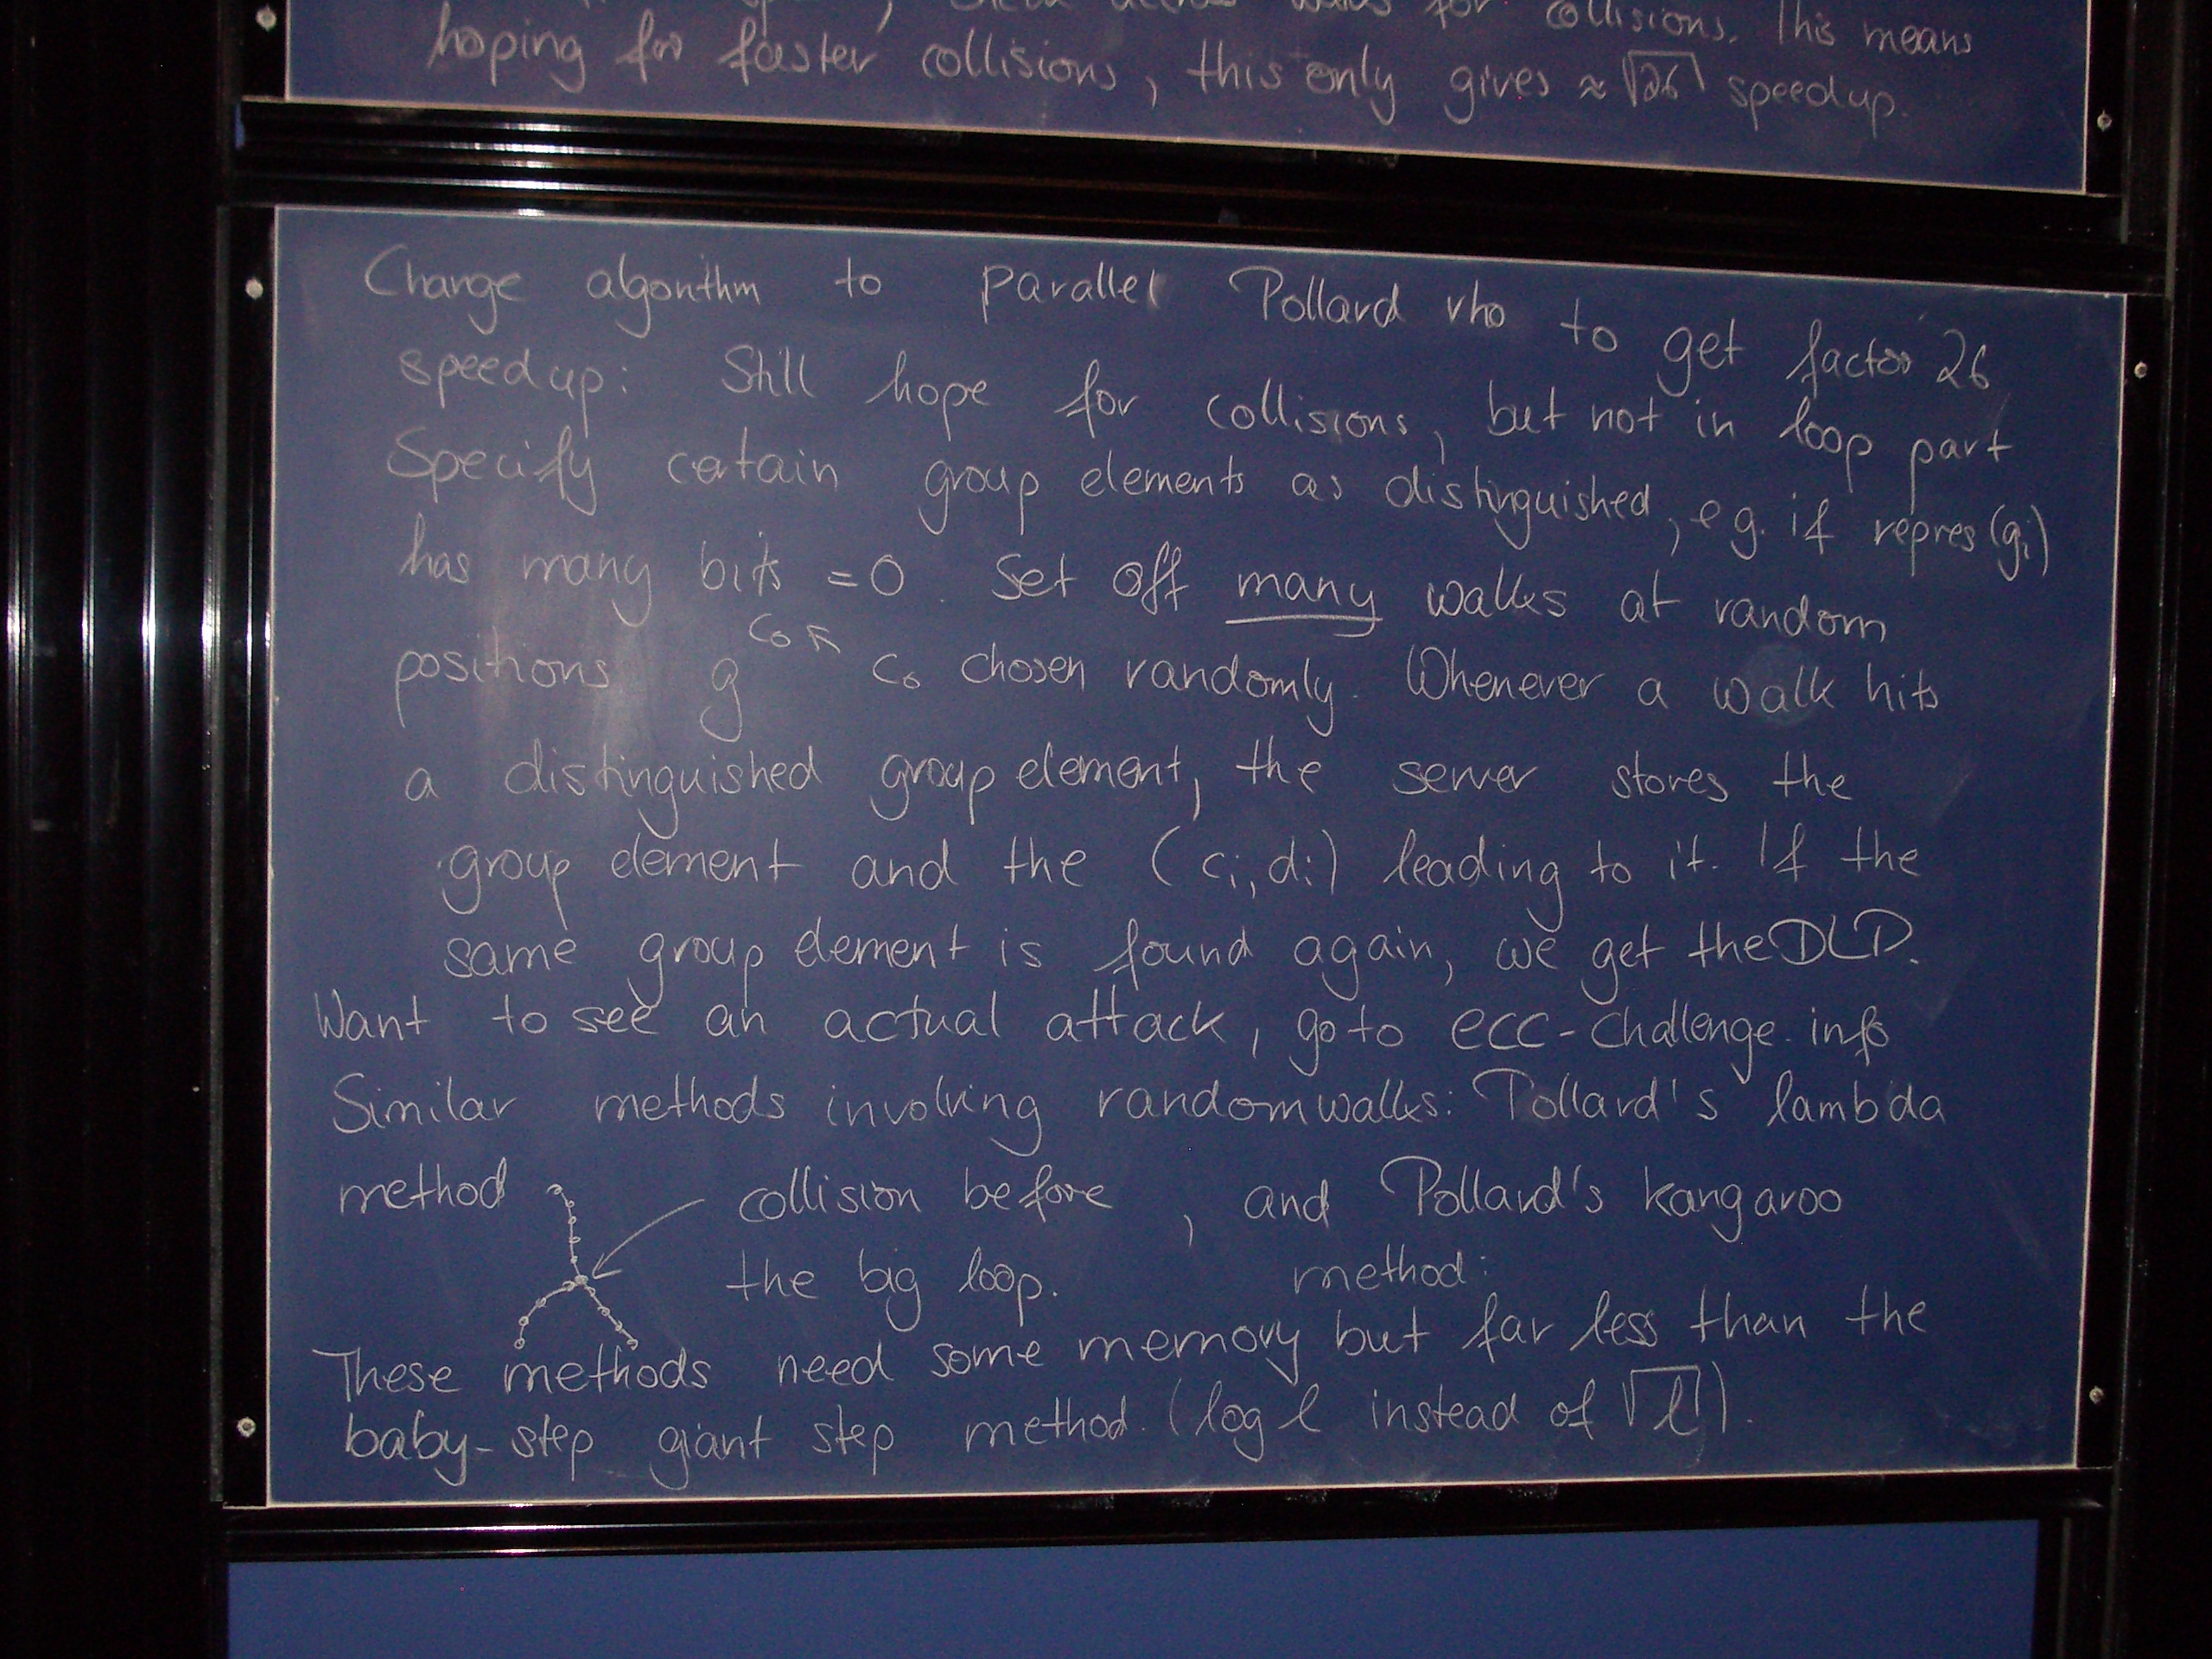 collisions. This means
hoping for faster collisions, this only gives ≈ √26 speedup.
Change algorithm to parallel Pollard rho to get factor 26
speedup: Still hope for collisions, but not in loop part
Specify certain group elements as distinguished, eg. if repres(gi)
has many bits =0. Set off many walks at random
positions g^c0 c0 chosen randomly. Whenever a walk hits
a distinguished group element, the server stores the
group element and the (ci, di) leading to it. If the
same group element is found again, we get the DLP.
Want to see an actual attack, go to ecc-challenge.info
Similar methods involving random walks: Pollard's lambda
method collision before , and Pollard's kangaroo
the big loop. method:
These methods need some memory but far less than the
baby-step giant step method. (log l instead of √l).